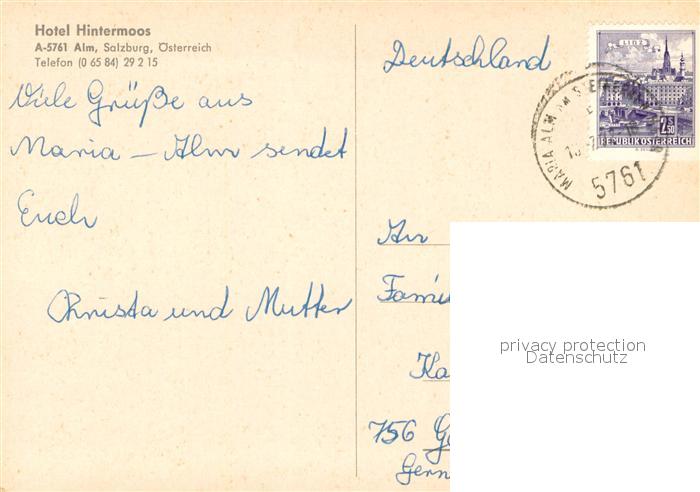 Hotel Hintermoos
A-5761 Alm, Salzburg, Österreich
Telefon (0 65 84) 29 2 15
Viele Grüße aus
Maria – Alm sendet
Euch
Christa und Mutter
Deutschland
LINZ
2.50
REPUBLIK ÖSTERREICH
MARIA ALM AM STEINERNEN
5761
An
Fami
Ka
756 G
Gern
privacy protection
Datenschutz